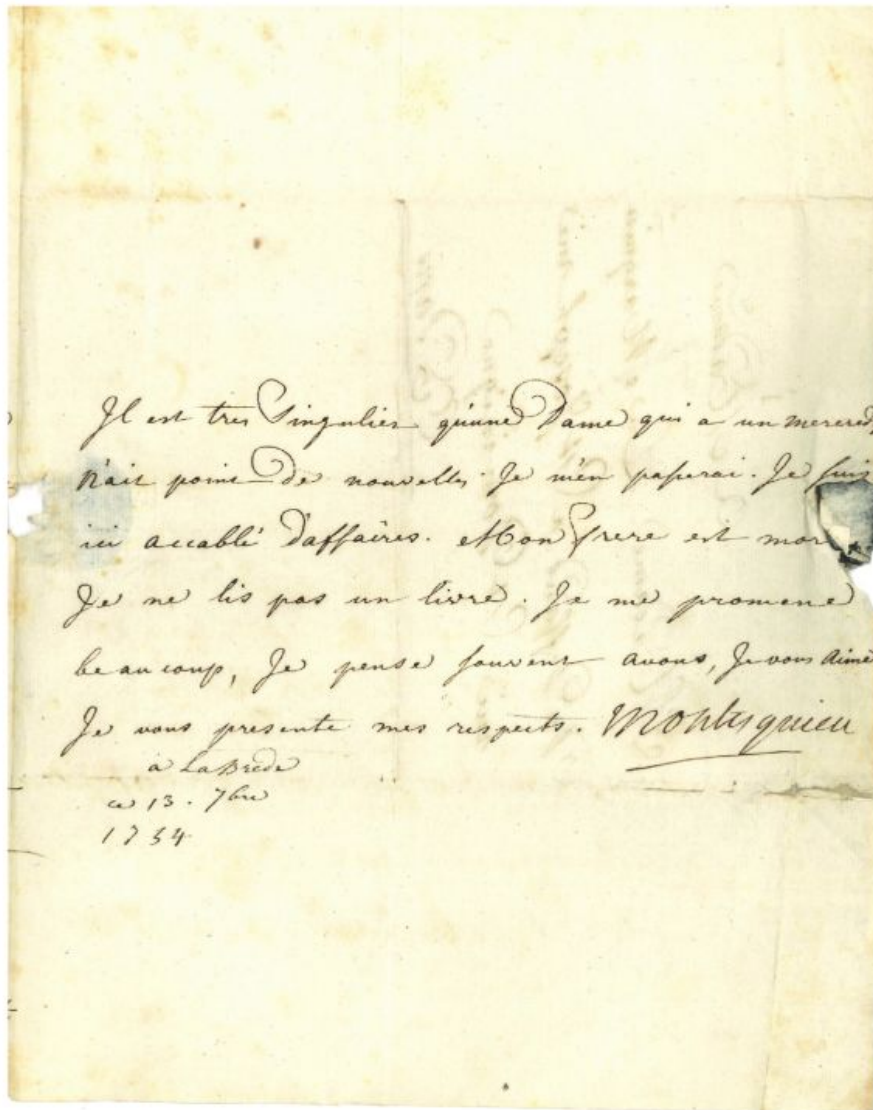 Il est tres singulier qu'une Dame qui a un mercredy
n'ait point de nouvelles. Je m'en passerai. Je suis
ici accablé d'affaires. Mon frere est mor
Je ne lis pas un livre. Je me promene
beaucoup, Je pense souvent avous, Je vous aime
Je vous presente mes respects. Montesquieu
a La Brede
ce 13. 7bre
1754